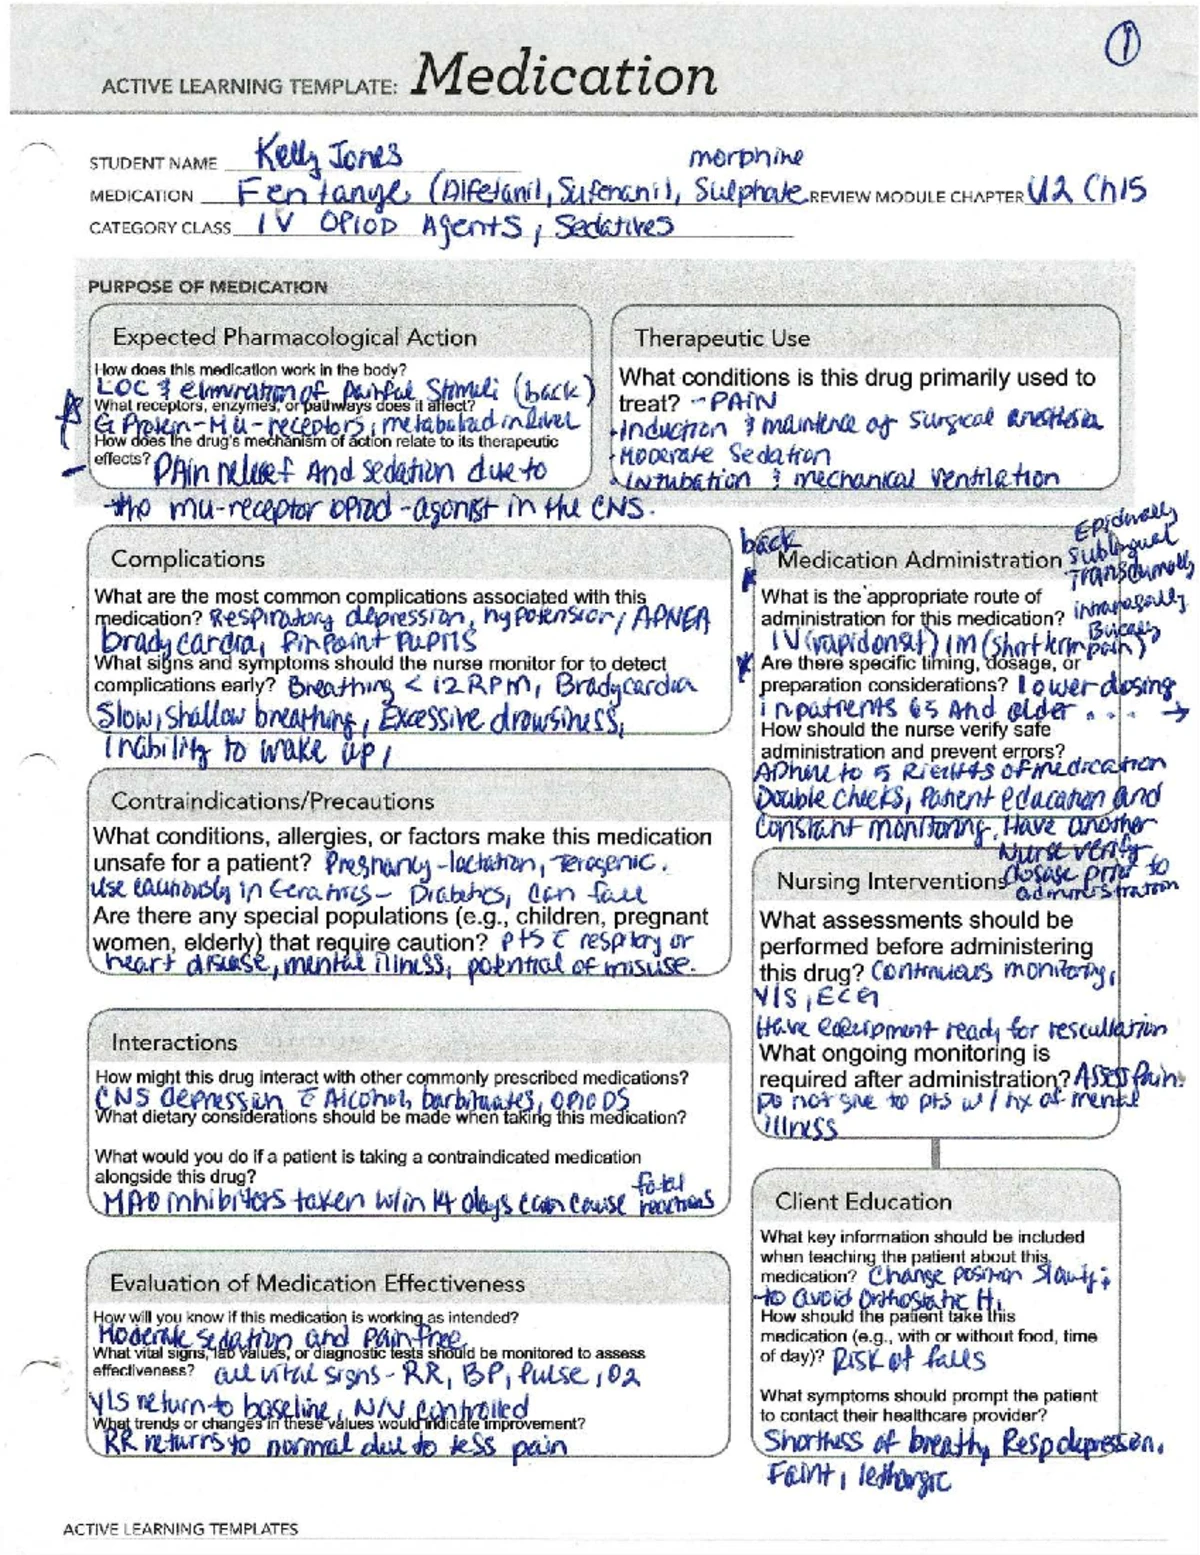 ①
ACTIVE LEARNING TEMPLATE: Medication
STUDENT NAME Kelly Jones
morphine
MEDICATION Fentanyl, (Alfetanil, Sufenanil), Sulphate REVIEW MODULE CHAPTER U2 Ch15
CATEGORY CLASS IV OPIOD Agents, Sedatives
PURPOSE OF MEDICATION
Expected Pharmacological Action
How does this medication work in the body?
LOC & elimination of Painful Stimuli (back)
What receptors, enzymes, or pathways does it affect?
G Protein-Mu-receptors, metabolized in liver
How does the drug's mechanism of action relate to its therapeutic
effects? PAin relief And sedation due to
the mu-receptor opiod-agonist in the CNS.
Therapeutic Use
What conditions is this drug primarily used to
treat? - PAIN
-Induction & maintence of surgical anesthesia
-Moderate Sedation
-Intubation & mechanical ventilation
Complications
What are the most common complications associated with this
medication? Respiratory depression, hypotension, APNEA
bradycardia, PinPoint Pupils
What signs and symptoms should the nurse monitor for to detect
complications early? Breathing < 12 RPM, Bradycardia
Slow, shallow breathing, Excessive drowsiness,
Inability to wake up,
Contraindications/Precautions
What conditions, allergies, or factors make this medication
unsafe for a patient? Pregnancy-lactation, Terogenic.
use cautiously in Geratrics- Diabetics, can fall
Are there any special populations (e.g., children, pregnant
women, elderly) that require caution? pts c̄ respitory or
heart disease, mental illness, potential of misuse.
Interactions
How might this drug interact with other commonly prescribed medications?
CNS depression c̄ Alcohol, barbituates, OPIODS
What dietary considerations should be made when taking this medication?
What would you do if a patient is taking a contraindicated medication
alongside this drug?
MAO inhibitors taken w/in 14 days can cause fatal reactions
Evaluation of Medication Effectiveness
How will you know if this medication is working as intended?
Moderate sedation and pain free
What vital signs, lab values, or diagnostic tests should be monitored to assess
effectiveness? all vital signs - RR, BP, Pulse, O2
V/S return to baseline, N/V controlled
What trends or changes in these values would indicate improvement?
RR returns to normal due to less pain
back
Medication Administration
Epidurally
Sublingual
Transdumally
intranasally
Buccaly
What is the appropriate route of
administration for this medication?
IV (rapid onset) IM (short term pain)
Are there specific timing, dosage, or
preparation considerations? lower dosing
in patients 65 And older . . . →
How should the nurse verify safe
administration and prevent errors?
ADhere to 5 RIGHTS of medication
Double checks, Patient education and
constant monitoring. Have another
Nurse verify
dosage prior to
administration
Nursing Interventions
What assessments should be
performed before administering
this drug? Continuous monitoring,
V/S, ECG
Have equipment ready for rescullation
What ongoing monitoring is
required after administration? Assess Pain.
Do not give to pts w/ hx of mental
illness
Client Education
What key information should be included
when teaching the patient about this
medication? Change position slowly
to avoid orthostatic H.
How should the patient take this
medication (e.g., with or without food, time
of day)? RISK of falls
What symptoms should prompt the patient
to contact their healthcare provider?
Shortness of breath, Resp depression.
Faint, lethargic
ACTIVE LEARNING TEMPLATES